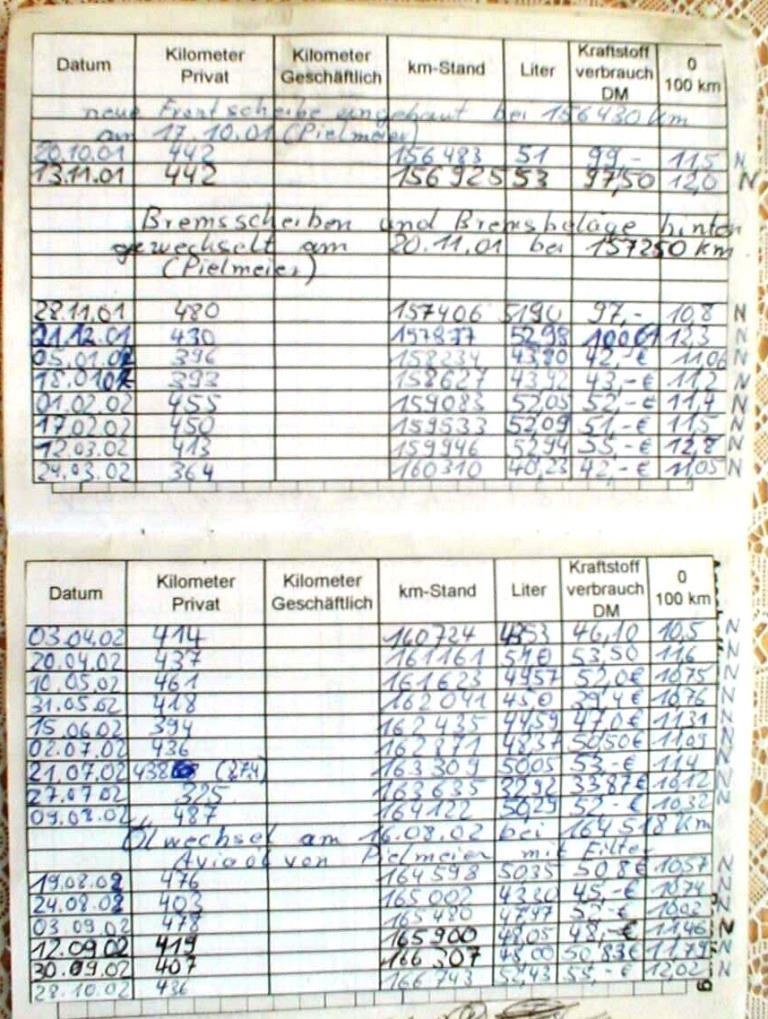 Datum Kilometer Privat Kilometer Geschäftlich km-Stand Liter Kraftstoff verbrauch DM 0 100 km
neue Frontscheibe eingebaut bei 156430 km
am 17.10.01 (Pielmeier)
20.10.01 442 156483 51 99,- 11,5 N
13.11.01 442 156925 53 97,50 12,0 N
Bremsscheiben und Bremsbeläge hinten
gewechselt am 20.11.01 bei 157250 km
(Pielmeier)
28.11.01 480 157406 5190 97,- 10,8 N
21.12.01 430 157837 52,98 100,61 12,3 N
05.01.02 396 158234 43,80 42,-€ 11,06 N
18.01.02 393 158627 43,92 43,-€ 11,2 N
01.02.02 455 159083 52,05 52,-€ 11,4 N
17.02.02 450 159533 52,09 51,-€ 11,5 N
12.03.02 413 159946 52,94 55,-€ 12,8 N
24.03.02 364 160310 40,23 42,-€ 11,05 N
Datum Kilometer Privat Kilometer Geschäftlich km-Stand Liter Kraftstoff verbrauch DM 0 100 km
03.04.02 414 160724 4353 46,10 10,5 N
20.04.02 437 161161 51,0 53,50 11,6 N
10.05.02 461 161623 4957 52,0€ 10,75 N
31.05.02 418 162041 45,0 10,76 N
15.06.02 394 162435 4459 47,0€ 11,31 N
02.07.02 436 162871 48,37 50,50€ 11,09 N
21.07.02 438 (874) 163309 5005 53,-€ 11,4 N
27.07.02 325 163635 3292 33,87€ 10,12 N
09.08.02 487 164122 5029 52,-€ 10,32
Ölwechsel am 16.08.02 bei 164518 km
Aviaöl von Pielmeier mit Filter
19.08.02 476 164598 5035 50,8€ 10,57 N
24.08.02 403 165002 4330 45,-€ 10,74 N
03.09.02 478 165480 4797 10,02 N
12.09.02 419 165900 48,05 48,-€ 11,46 N
30.09.02 407 166307 48,00 50,83€ 11,79 N
28.10.02 436 166743 52,43 55,-€ 12,02 N